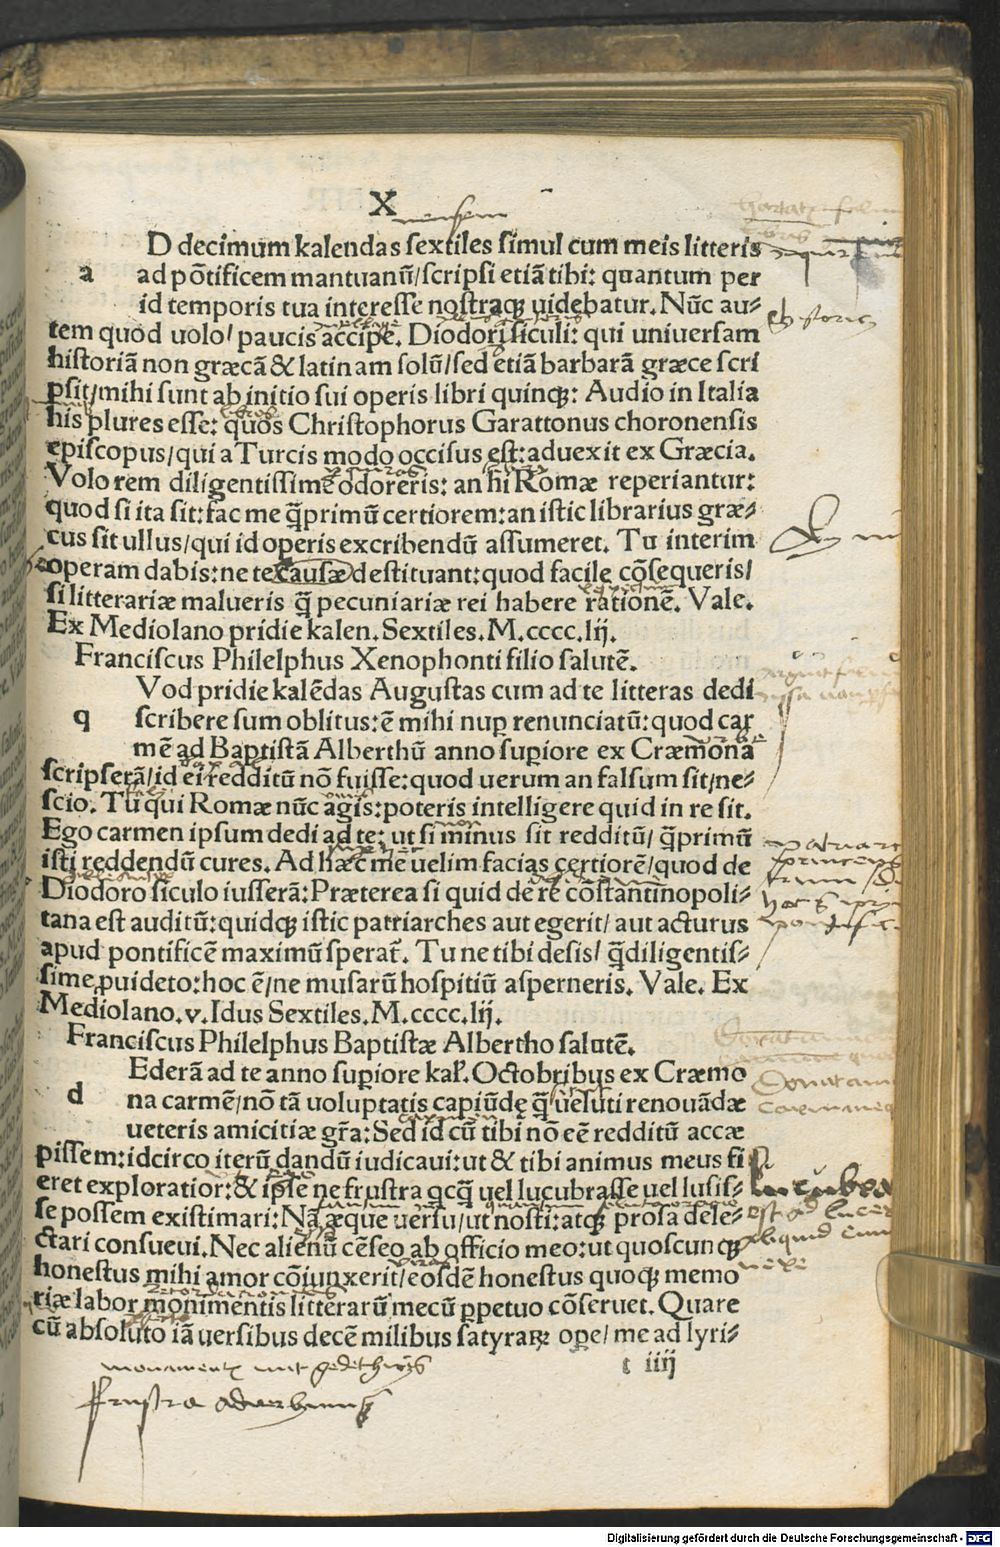 X
D decimum kalendas sextiles simul cum meis litteris
a ad põtificem mantuanũ/scripsi etiã tibi: quantum per
id temporis tua interesse nostraqꝫ uidebatur. Nũc au⸗
tem quod uolo/ paucis accipe. Diodori siculi: qui uniuersam
historiã non græcã & latinam solũ/sed etiã barbarã græce scri
psit/mihi sunt ab initio sui operis libri quinqꝫ: Audio in Italia
his plures esse: quos Christophorus Garattonus choronensis
episcopus/qui a Turcis modo occisus est: aduexit ex Græcia.
Volo rem diligentissime odoreris: an hi Romæ reperiantur:
quod si ita sit: fac me q̃primũ certiorem: an istic librarius græ⸗
cus sit ullus/qui id operis excribendũ assumeret. Tu interim
operam dabis: ne te causæ destituant: quod facile cõsequeris/
si litterariæ malueris q̃ pecuniariæ rei habere rationẽ. Vale.
Ex Mediolano pridie kalen. Sextiles. M.cccc.lij.
Franciscus Philelphus Xenophonti filio salutẽ.
Vod pridie kalẽdas Augustas cum ad te litteras dedi
q scribere sum oblitus: ẽ mihi nup renunciatũ: quod car
mẽ ad Baptistã Alberthũ anno supiore ex Cræmona
scripserã/id ei redditũ nõ fuisse: quod uerum an falsum sit/ne⸗
scio. Tu qui Romæ nũc agis: poteris intelligere quid in re sit.
Ego carmen ipsum dedi ad te: ut si minus sit redditũ/ q̃primũ
isti reddendũ cures. Ad hæc me uelim facias certiorẽ/quod de
Diodoro siculo iusserã: Præterea si quid de re cõstantinopoli⸗
tana est auditũ: quidqꝫ istic patriarches aut egerit/ aut acturus
apud pontificẽ maximũ sperat̃. Tu ne tibi desis/ q̃diligentis⸗
sime puideto: hoc ẽ/ne musarũ hospitiũ asperneris. Vale. Ex
Mediolano. v. Idus Sextiles. M.cccc.lij.
Franciscus Philelphus Baptistæ Albertho salutẽ.
Ederã ad te anno supiore kal̃. Octobribus ex Cræmo
d na carmẽ/nõ tã uoluptatis capiũdę q̃ ueluti renouãdæ
ueteris amicitiæ gr̃a: Sed id cũ tibi nõ eẽ redditũ accæ
pissem: idcirco iterũ dandũ iudicaui: ut & tibi animus meus fi
eret exploratior: & ipse ne frustra qcq̃ uel lucubrasse uel lusis⸗
se possem existimari: Nã æque uersu/ut nosti: atqꝫ prosa dele⸗
ctari consueui. Nec alienũ cẽseo ab officio meo: ut quoscunqꝫ
honestus mihi amor cõiunxerit/eosdẽ honestus quoqꝫ memo
riæ labor monimentis litterarũ mecũ ppetuo cõseruet. Quare
cũ absoluto iã uersibus decẽ milibus satyraꝝ ope/ me ad lyri⸗
t iiij
frustra aduerbium
Digitalisierung gefördert durch die Deutsche Forschungsgemeinschaft - DFG